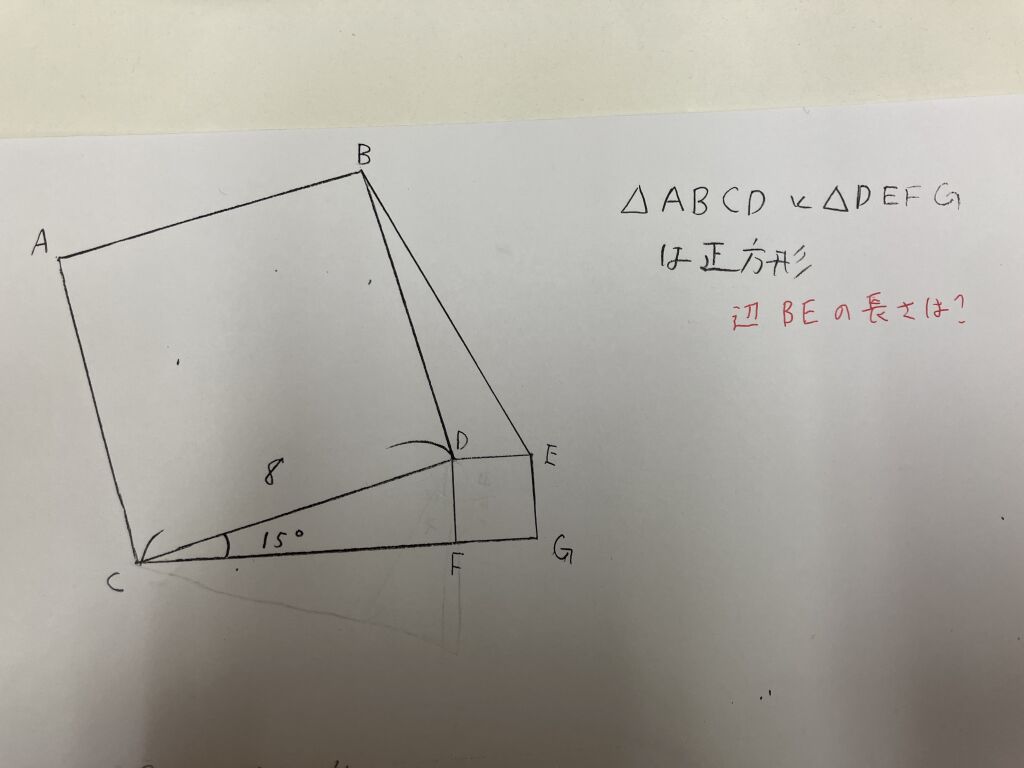 B
A
△ABCDと△DEFG
は正方形
辺BEの長さは?
D
E
8
15°
C
F
G